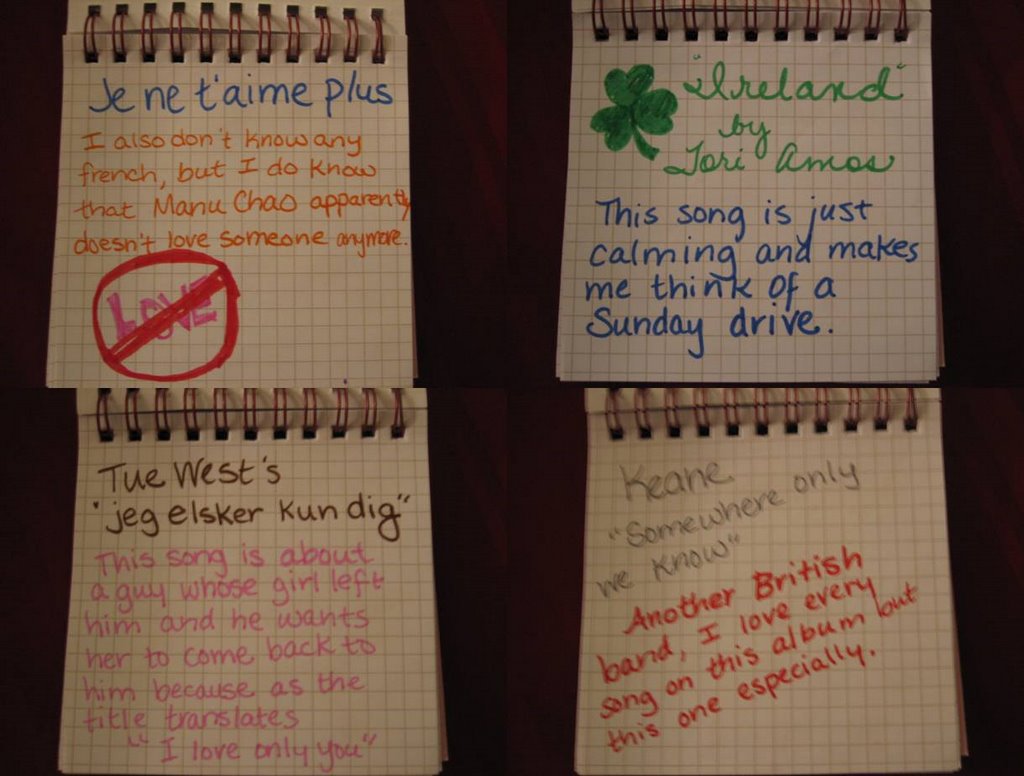 Je ne t'aime plus
I also don't know any
french, but I do know
that Manu Chao apparently
doesn't love someone anymore.
LOVE
"Ireland"
by
Tori Amos
This song is just
calming and makes
me think of a
Sunday drive.
Tue West's
"jeg elsker kun dig"
This song is about
a guy whose girl left
him and he wants
her to come back to
him because as the
title translates
"I love only you"
Keane
"Somewhere only
we know"
Another British
band, I love every
song on this album but
this one especially.